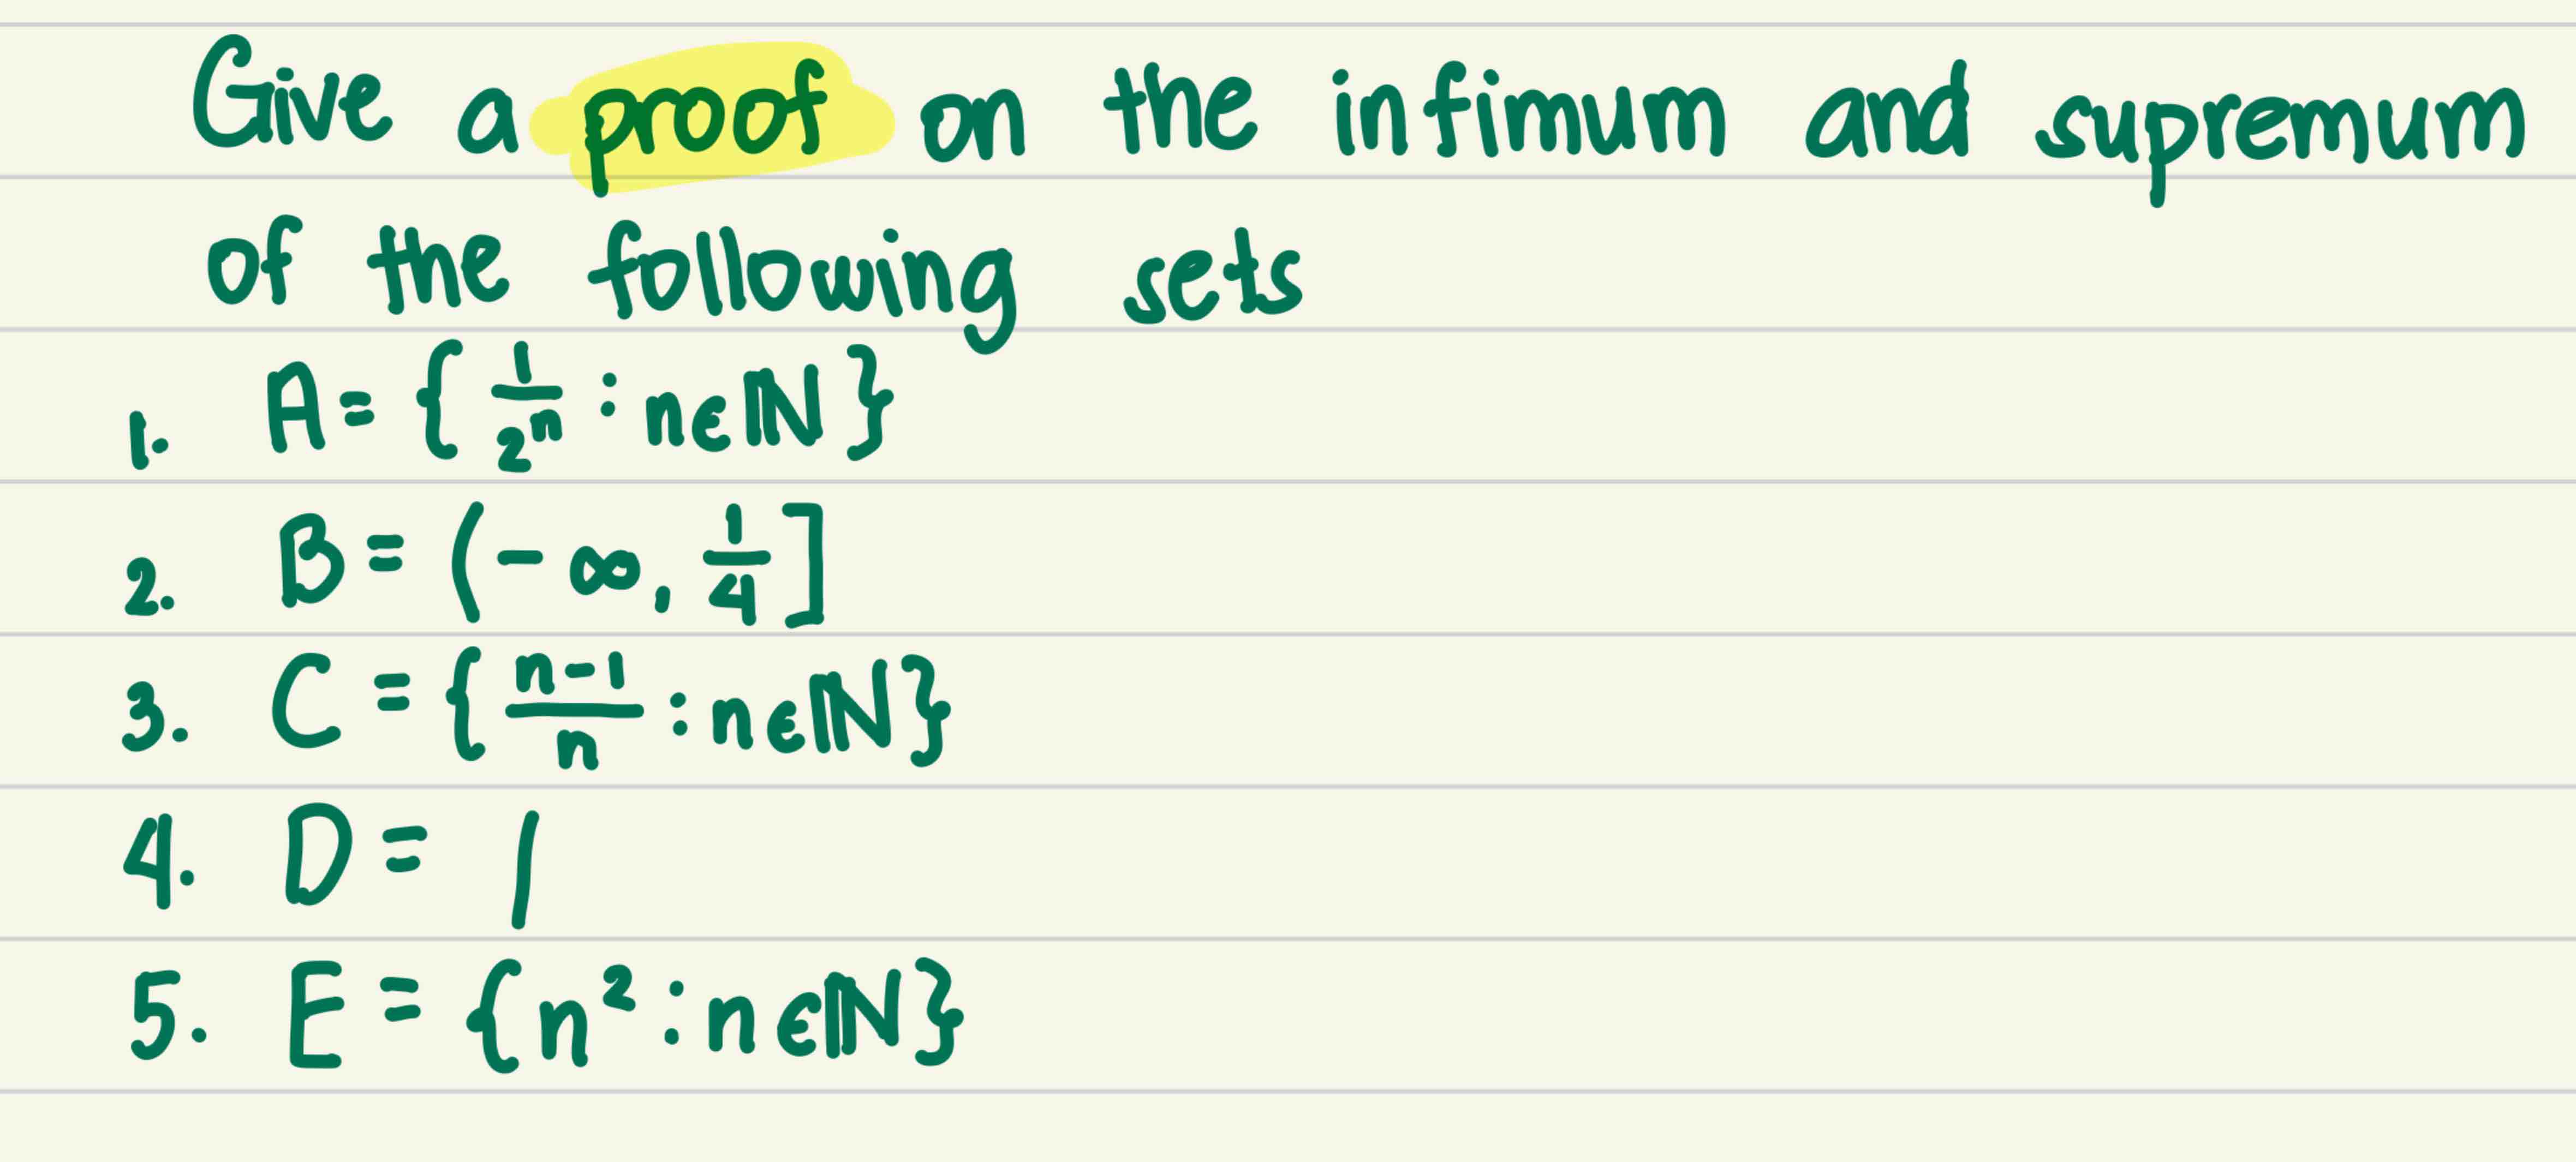 Give a proof on the infimum and supremum
of the following sets
1. A = { 1/2ⁿ : n ∈ ℕ }
2. B = (-∞, 1/4]
3. C = { n-1/n : n ∈ ℕ }
4. D = /
5. E = { n² : n ∈ ℕ }